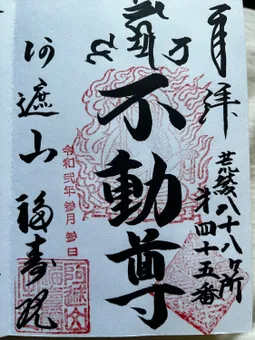 奉拝
荒綾八十八ヶ所
第四十五番
不動尊
令和弐年参月参日
阿遮山 福寿院